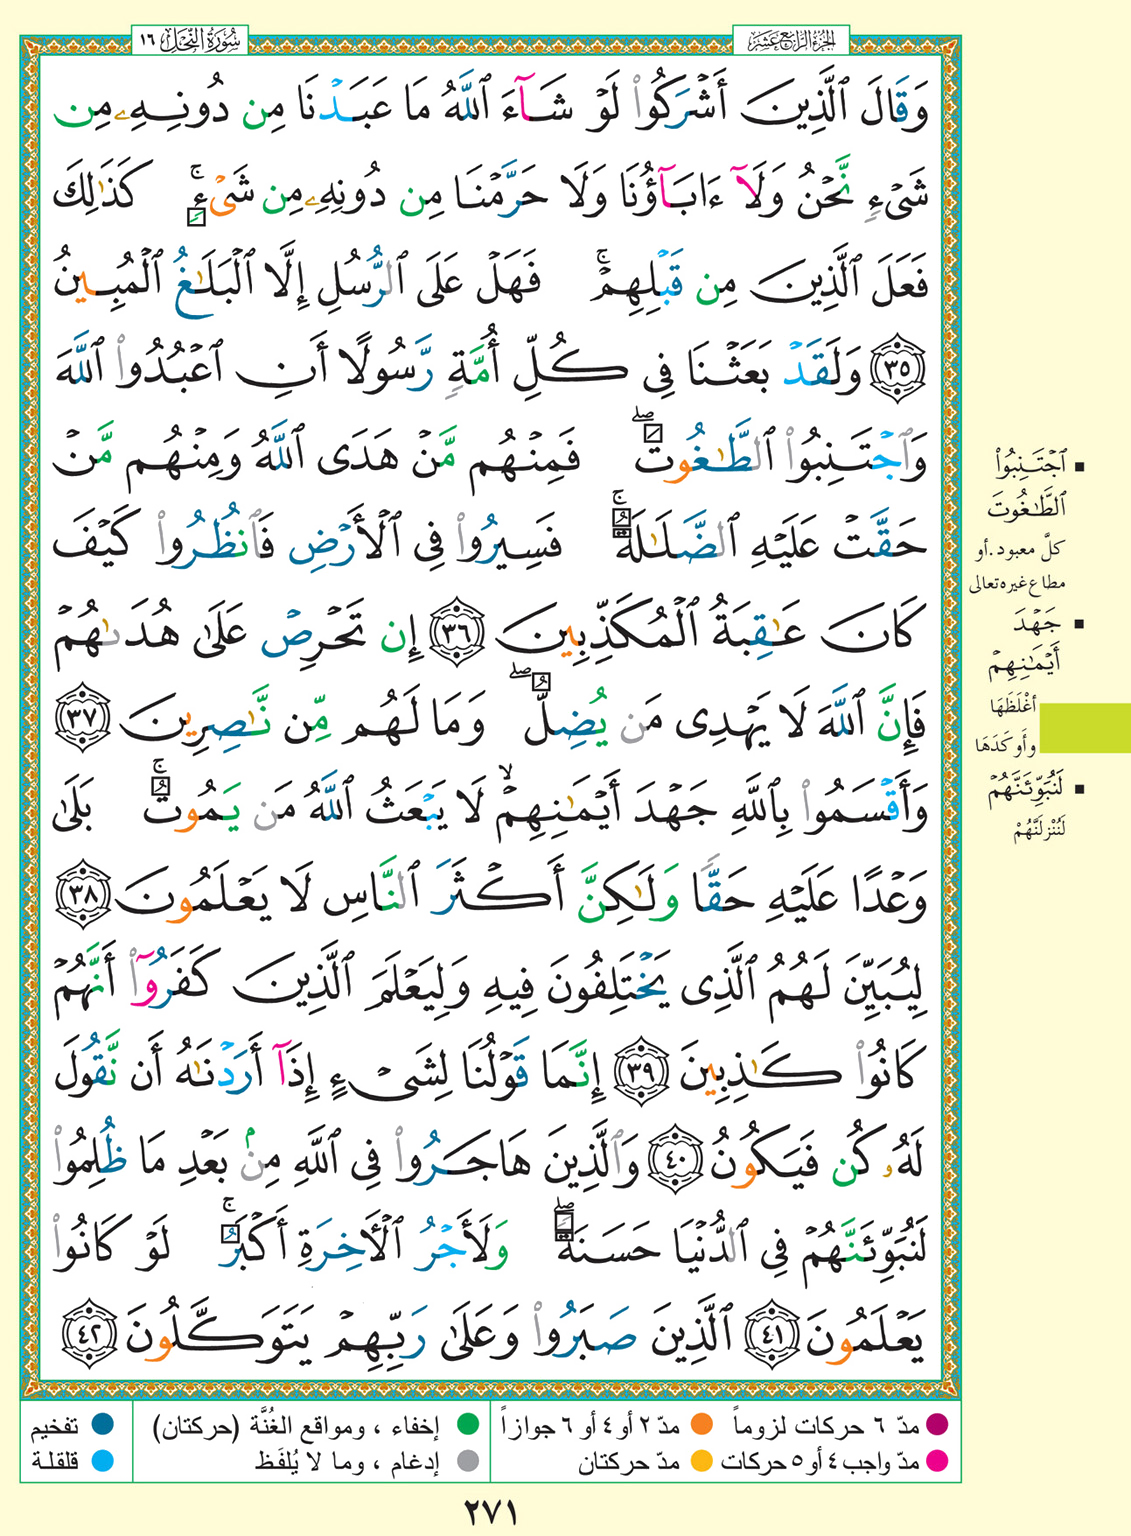 الجزء الرابع عشر
سورة النحل ١٦
وَقَالَ ٱلَّذِينَ أَشْرَكُوا۟ لَوْ شَآءَ ٱللَّهُ مَا عَبَدْنَا مِن دُونِهِۦ مِن
شَىْءٍ نَّحْنُ وَلَآ ءَابَآؤُنَا وَلَا حَرَّمْنَا مِن دُونِهِۦ مِن شَىْءٍ ۚ كَذَٰلِكَ
فَعَلَ ٱلَّذِينَ مِن قَبْلِهِمْ ۚ فَهَلْ عَلَى ٱلرُّسُلِ إِلَّا ٱلْبَلَٰغُ ٱلْمُبِينُ
٣٥ وَلَقَدْ بَعَثْنَا فِى كُلِّ أُمَّةٍ رَّسُولًا أَنِ ٱعْبُدُوا۟ ٱللَّهَ
وَٱجْتَنِبُوا۟ ٱلطَّٰغُوتَ ۖ فَمِنْهُم مَّنْ هَدَى ٱللَّهُ وَمِنْهُم مَّنْ
حَقَّتْ عَلَيْهِ ٱلضَّلَٰلَةُ ۚ فَسِيرُوا۟ فِى ٱلْأَرْضِ فَٱنظُرُوا۟ كَيْفَ
كَانَ عَٰقِبَةُ ٱلْمُكَذِّبِينَ ٣٦ إِن تَحْرِصْ عَلَىٰ هُدَىٰهُمْ
فَإِنَّ ٱللَّهَ لَا يَهْدِى مَن يُضِلُّ ۖ وَمَا لَهُم مِّن نَّٰصِرِينَ ٣٧
وَأَقْسَمُوا۟ بِٱللَّهِ جَهْدَ أَيْمَٰنِهِمْ ۙ لَا يَبْعَثُ ٱللَّهُ مَن يَمُوتُ ۚ بَلَىٰ
وَعْدًا عَلَيْهِ حَقًّا وَلَٰكِنَّ أَكْثَرَ ٱلنَّاسِ لَا يَعْلَمُونَ ٣٨
لِيُبَيِّنَ لَهُمُ ٱلَّذِى يَخْتَلِفُونَ فِيهِ وَلِيَعْلَمَ ٱلَّذِينَ كَفَرُوٓا۟ أَنَّهُمْ
كَانُوا۟ كَٰذِبِينَ ٣٩ إِنَّمَا قَوْلُنَا لِشَىْءٍ إِذَآ أَرَدْنَٰهُ أَن نَّقُولَ
لَهُۥ كُن فَيَكُونُ ٤٠ وَٱلَّذِينَ هَاجَرُوا۟ فِى ٱللَّهِ مِنۢ بَعْدِ مَا ظُلِمُوا۟
لَنُبَوِّئَنَّهُمْ فِى ٱلدُّنْيَا حَسَنَةً ۖ وَلَأَجْرُ ٱلْءَاخِرَةِ أَكْبَرُ ۚ لَوْ كَانُوا۟
يَعْلَمُونَ ٤١ ٱلَّذِينَ صَبَرُوا۟ وَعَلَىٰ رَبِّهِمْ يَتَوَكَّلُونَ ٤٢
▪ ٱجْتَنِبُوا۟
ٱلطَّٰغُوتَ
كلّ معبود.أو
مطاع غيره تعالى
▪ جَهْدَ
أَيْمَٰنِهِمْ
أغْلَظَهَا
وأَوكَدَهَا
▪ لَنُبَوِّئَنَّهُمْ
لَنُنْزِلَنَّهُمْ
مدّ ٦ حركات لزوماً مدّ ٢ أو ٤ أو ٦ جوازاً إخفاء ، ومواقع الغُنَّة (حركتان) تفخيم
مدّ واجب ٤ أو ٥ حركات مدّ حركتان إدغام ، وما لا يُلفَظ قلقلة
٢٧١